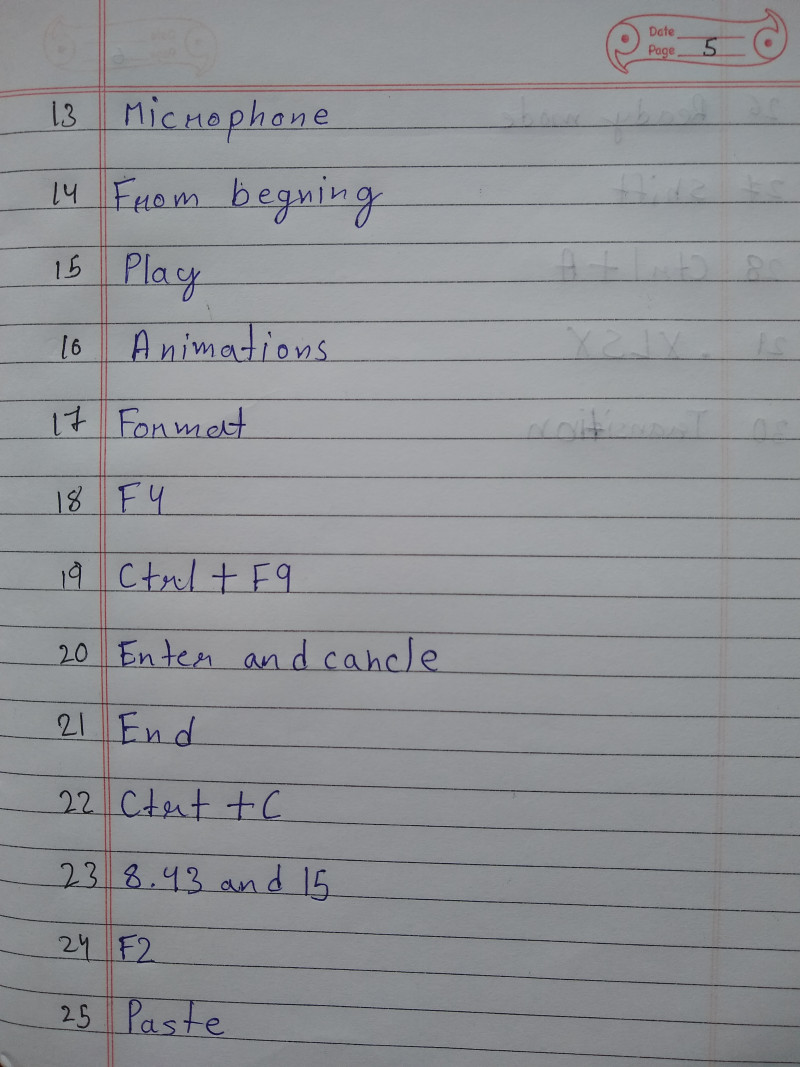 Date
Page 5
13 Microphone
14 From begning
15 Play
16 Animations
17 Format
18 F4
19 Ctrl + F9
20 Enter and cancle
21 End
22 Ctrt + C
23 8.43 and 15
24 F2
25 Paste